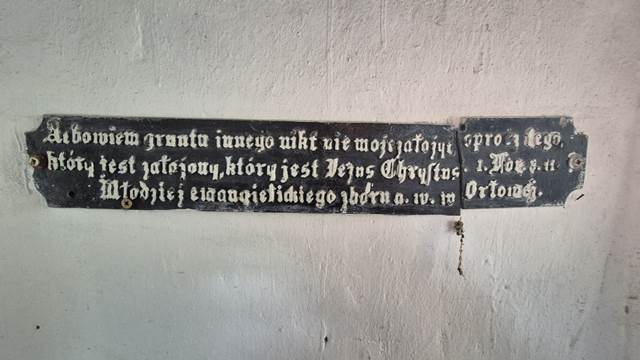 Albowiem gruntu innego nikt nie może założyć oprócz tego,
który jest założony, który jest Jezus Chrystus. 1. Kor. 3. 11
Młodzież ewangielickiego zboru a. w. w Orłowej.